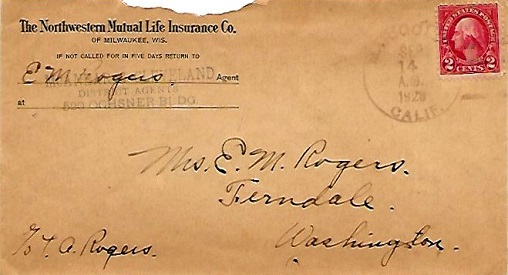 The Northwestern Mutual Life Insurance Co.
OF MILWAUKEE, WIS.
IF NOT CALLED FOR IN FIVE DAYS RETURN TO
E M Rogers. Agent
DISTRICT AGENTS
at 520 OCHSNER BLDG.
SEP
14
A.M.
1923
CALIF.
UNITED STATES POSTAGE
2 CENTS 2
Mrs. E. M. Rogers.
Ferndale.
Washington.
T. A. Rogers.